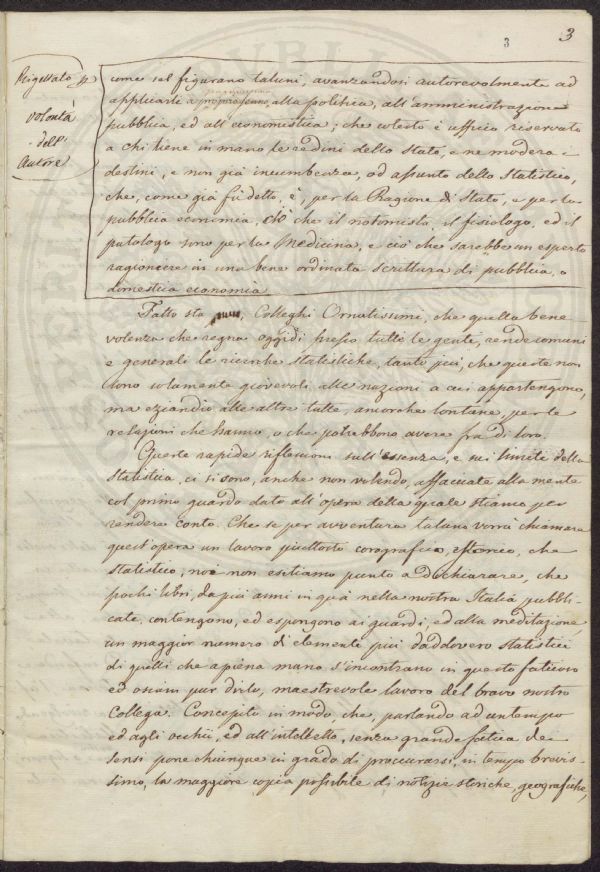 3
3
Rigettato p
volontà
dell'
Autore
come sel figurano taluni, avanzandosi autorevolmente ad
applicarli a proprio senno, alla politica, all'amministrazione
pubblica, ed all'economistica; che cotesto è ufficio riservato
a chi tiene in mano le redini dello Stato, e ne modera i
destini, e non già incumbenza, od assunto dello Statistico,
che, come già fù detto, è, per la Ragione di Stato, e per la
pubblica economia ciò che il notomista, il fisiologo, ed il
patologo sono per la Medicina, e ciò che sarebbe un esperto
ragioniere in una bene ordinata scrittura di pubblica, o
domestica economia.
Fatto sta, Colleghi Ornatissimi, che quella bene
volenza che regna oggidì presso tutte le genti, rende comuni
e generali le ricerche statistiche, tanto più, che queste non
sono solamente giovevoli alle nazioni a cui appartengono,
ma eziandio alle altre tutte, ancorche lontane, per le
relazioni che hanno, o che potrebbono avere fra di loro.
Queste rapide riflessioni sull'essenza, e sui limiti della
Statistica, ci si sono, anche non volendo, affacciate alla mente
col primo guardo dato all'opera della quale stiamo per
rendere conto. Che se per avventura taluno vorrà chiamare
quest'opera un lavoro piuttosto corografico, storico, che
statistico, noi non esitiamo punto a dichiarare, che
pochi libri, da più anni in quà nella nostra Italia pubbli-
cati, contengono, ed espongono ai guardi, ed alla meditazione,
un maggior numero di elementi più daddovero statistici
di quelli che a piena mano s'incontrano in questo faticoso
ed osiam pur dirlo, maestrevole lavoro del bravo nostro
Collega. Concepito in modo, che, parlando ad un tempo
ed agli occhi, ed all'intelletto, senza grande fatica de'
sensi pone chiunque in grado di proccurarsi, in tempo brevis-
simo, la maggiore copia possibile di notizie storiche, geografiche,